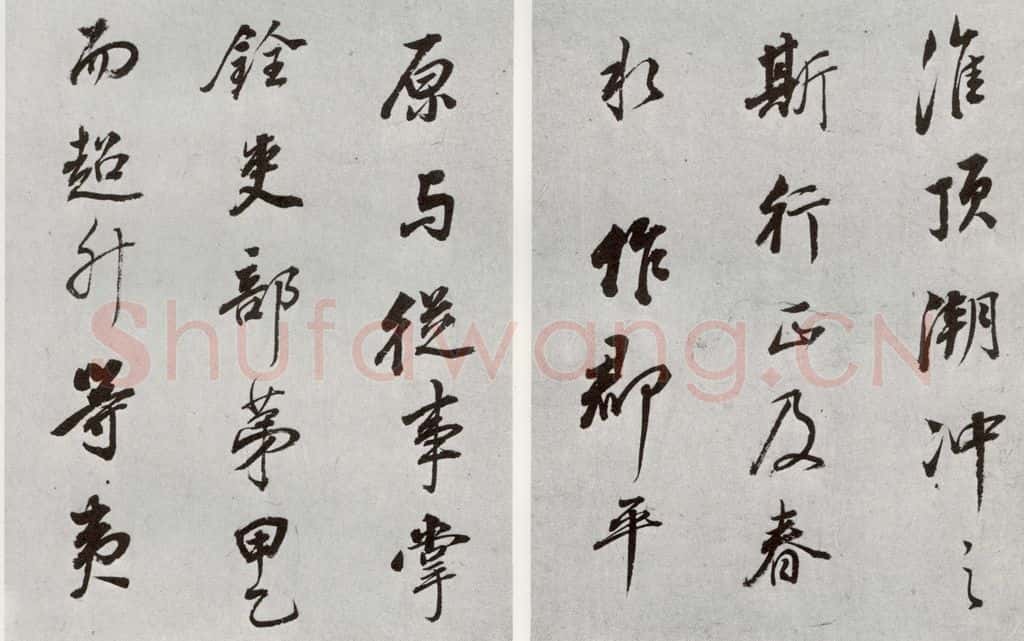 淮顶潮冲之
斯行正及春
水作郡平
原与從事掌
銓吏部第甲乙
而超升等夷
Shufawang.CN